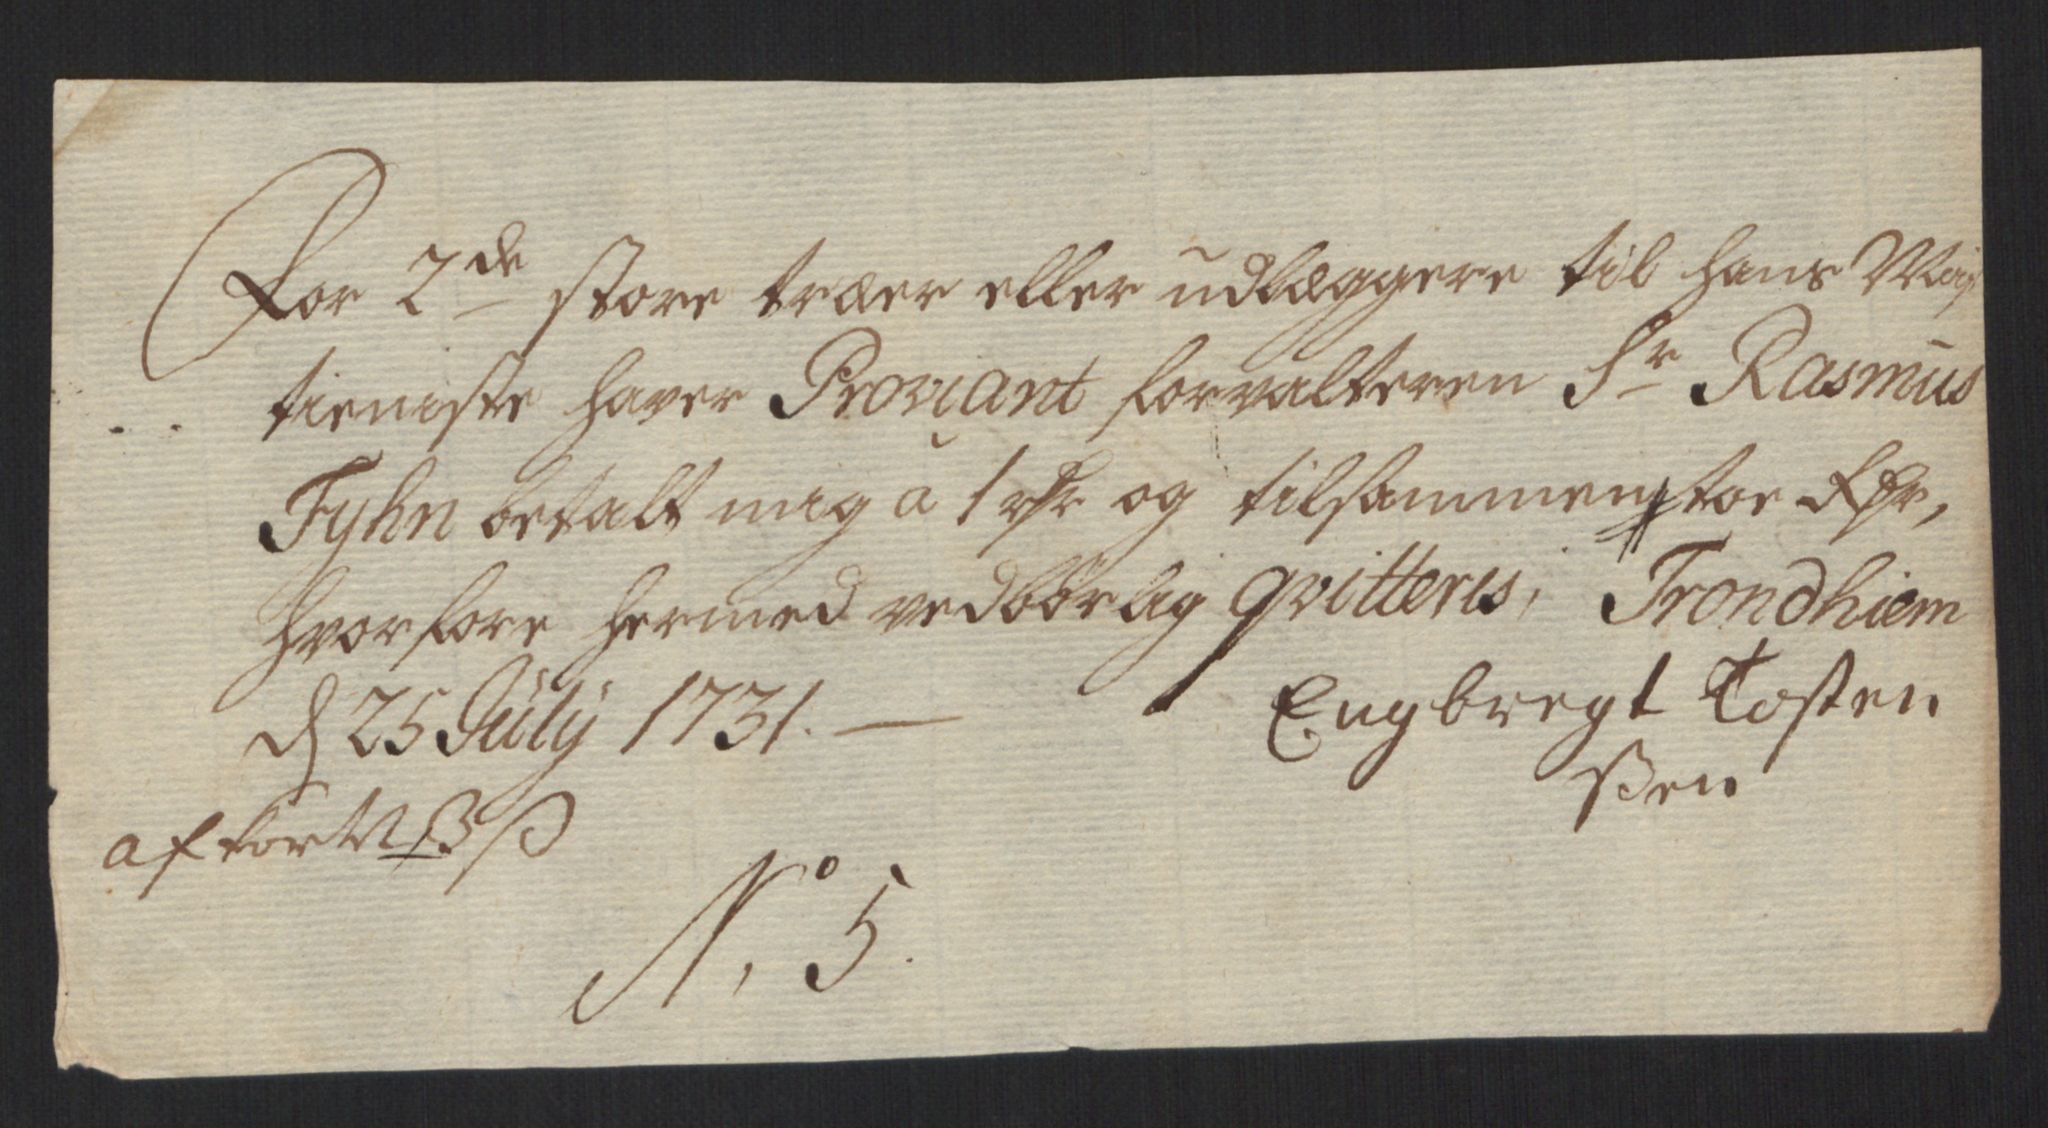 For 2de store træer eller udlæggere til hans May
tieniste haver Proviant forvalteren Sr Rasmus
Fyhn betalt mig a 1 rdr og tilsammen toe Rdr,
hvorfore hermed vedbørlig qvitteris, Trondhiem
d 25 July 1731. —
Engbregt Tosten
ßen
N.o 5.